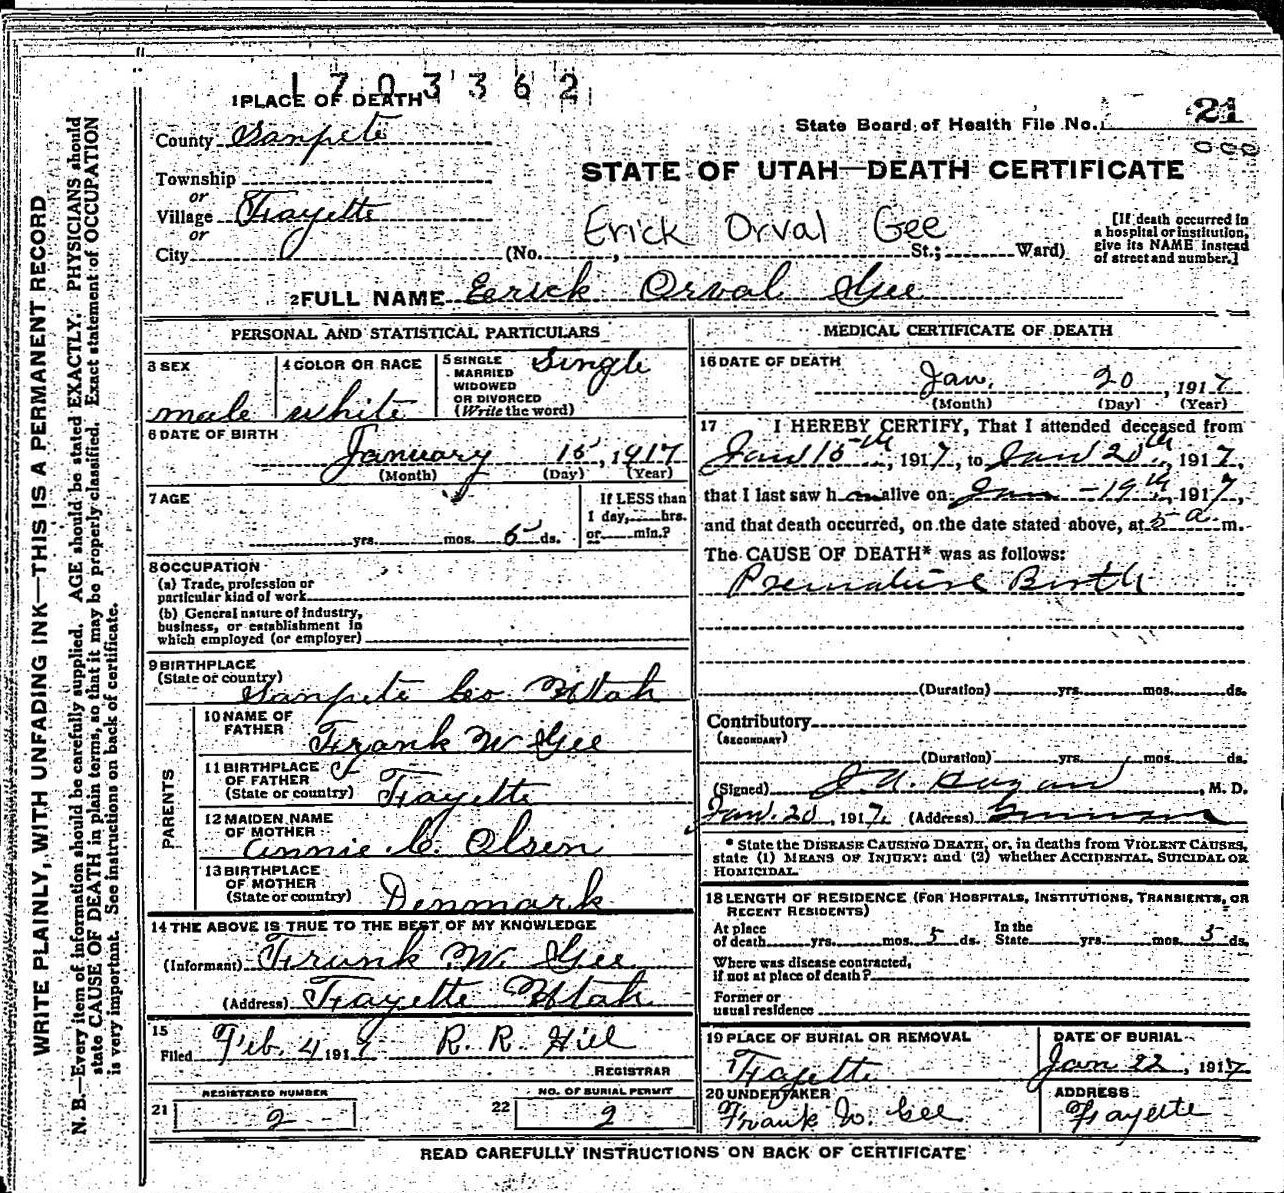 1703362
1 PLACE OF DEATH
County Sanpete
State Board of Health File No. 21
000
STATE OF UTAH—DEATH CERTIFICATE
Township
or
Village Fayette
or
City
Erick Orval Gee
(No. , St.; Ward)
[If death occurred in
a hospital or institution,
give its NAME instead
of street and number.]
2 FULL NAME Eerick Orval Gee
PERSONAL AND STATISTICAL PARTICULARS
3 SEX
male
4 COLOR OR RACE
white
5 SINGLE
MARRIED
WIDOWED
OR DIVORCED
(Write the word)
Single
6 DATE OF BIRTH
January 15, 1917
(Month) (Day) (Year)
7 AGE
yrs. mos. 5 ds.
If LESS than
1 day, hrs.
or min.?
8 OCCUPATION
(a) Trade, profession or
particular kind of work
(b) General nature of industry,
business, or establishment in
which employed (or employer)
9 BIRTHPLACE
(State or country)
Sanpete Co Utah
PARENTS
10 NAME OF
FATHER
Frank W Gee
11 BIRTHPLACE
OF FATHER
(State or country)
Fayette
12 MAIDEN NAME
OF MOTHER
Annie C. Olsen
13 BIRTHPLACE
OF MOTHER
(State or country)
Denmark
14 THE ABOVE IS TRUE TO THE BEST OF MY KNOWLEDGE
(Informant) Frank W. Gee
(Address) Fayette Utah
15
Filed Feb. 4 1917 R. R. Hill
REGISTRAR
REGISTERED NUMBER
21 2
NO. OF BURIAL PERMIT
22 2
MEDICAL CERTIFICATE OF DEATH
16 DATE OF DEATH
Jan. 20, 1917
(Month) (Day) (Year)
17 I HEREBY CERTIFY, That I attended deceased from
Jan 15th, 1917, to Jan 20th, 1917,
that I last saw h im alive on Jan - 19th, 1917,
and that death occurred, on the date stated above, at 5 a m.
The CAUSE OF DEATH* was as follows:
Premature Birth
(Duration) yrs. mos. ds.
Contributory
(SECONDARY)
(Duration) yrs. mos. ds.
(Signed) , M. D.
Jan. 20, 1917. (Address)
* State the DISEASE CAUSING DEATH, or, in deaths from VIOLENT CAUSES,
state (1) MEANS OF INJURY; and (2) whether ACCIDENTAL, SUICIDAL OR
HOMICIDAL.
18 LENGTH OF RESIDENCE (FOR HOSPITALS, INSTITUTIONS, TRANSIENTS, OR
RECENT RESIDENTS)
At place
of death yrs. mos. 5 ds.
In the
State yrs. mos. 5 ds.
Where was disease contracted,
if not at place of death?
Former or
usual residence
19 PLACE OF BURIAL OR REMOVAL
Fayette
DATE OF BURIAL
Jan 22, 1917
20 UNDERTAKER
Frank W. Gee
ADDRESS
Fayette
READ CAREFULLY INSTRUCTIONS ON BACK OF CERTIFICATE
WRITE PLAINLY, WITH UNFADING INK—THIS IS A PERMANENT RECORD
N. B.—Every item of information should be carefully supplied. AGE should be stated EXACTLY. PHYSICIANS should
state CAUSE OF DEATH in plain terms, so that it may be properly classified. Exact statement of OCCUPATION
is very important. See instructions on back of certificate.